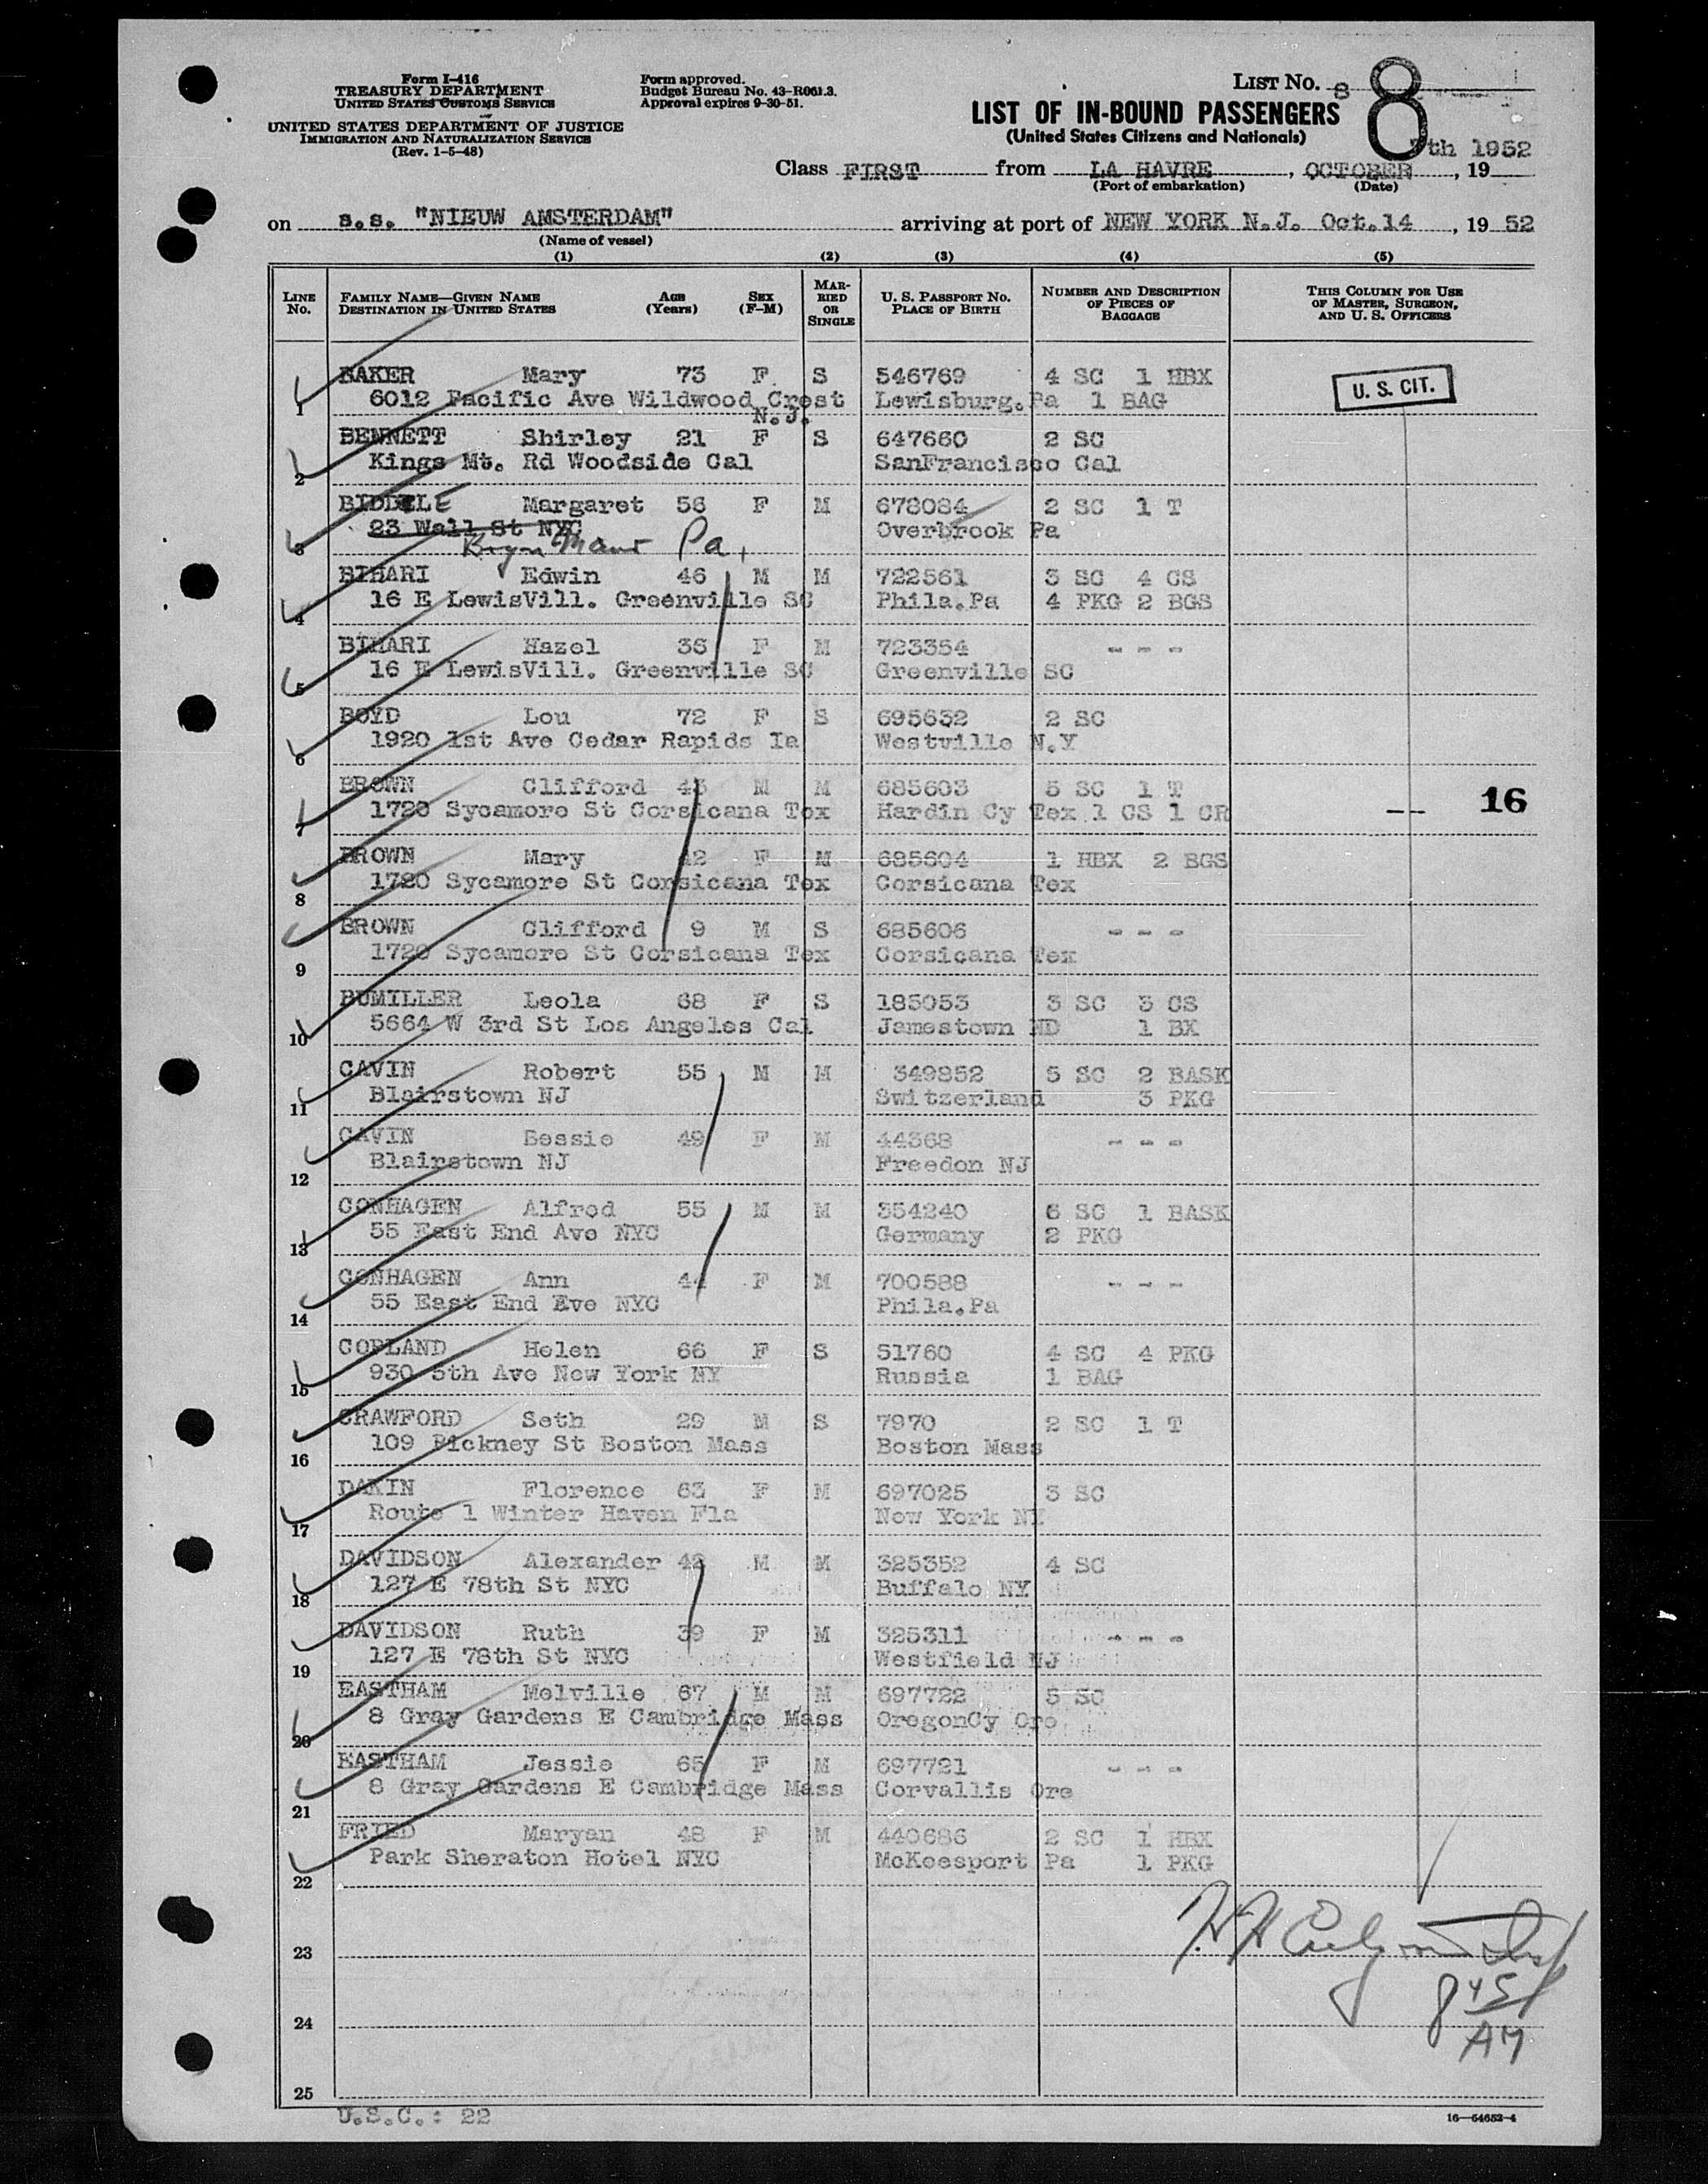 Form I-416
TREASURY DEPARTMENT
UNITED STATES CUSTOMS SERVICE
UNITED STATES DEPARTMENT OF JUSTICE
IMMIGRATION AND NATURALIZATION SERVICE
(Rev. 1-5-48)
Form approved.
Budget Bureau No. 43-R061.3.
Approval expires 9-30-51.
LIST No. 8 8
LIST OF IN-BOUND PASSENGERS
(United States Citizens and Nationals)
7th 1952
Class FIRST from LA HAVRE, OCTOBER, 19
(Port of embarkation) (Date)
on s.s. "NIEUW AMSTERDAM" arriving at port of NEW YORK N.J. Oct.14, 19 52
(Name of vessel)
(1) (2) (3) (4) (5)
LINE No. FAMILY NAME—GIVEN NAME DESTINATION IN UNITED STATES AGE (Years) SEX (F-M) MARRIED OR SINGLE U. S. PASSPORT NO. PLACE OF BIRTH NUMBER AND DESCRIPTION OF PIECES OF BAGGAGE THIS COLUMN FOR USE OF MASTER, SURGEON, AND U. S. OFFICERS
BAKER Mary 73 F S 546769 4 SC 1 HBX U. S. CIT.
1 6012 Pacific Ave Wildwood Crest Lewisburg.Pa 1 BAG
N.J.
BENNETT Shirley 21 F S 647660 2 SC
2 Kings Mt. Rd Woodside Cal SanFrancisco Cal
BIDDLE Margaret 56 F M 678084 2 SC 1 T
23 Wall St NYC Overbrook Pa
3 Bryn Mawr Pa.
BIHARI Edwin 46 M M 722561 3 SC 4 CS
4 16 E LewisVill. Greenville SC Phila.Pa 4 PKG 2 BGS
BIHARI Hazel 36 F M 723354 - - -
5 16 E LewisVill. Greenville SC Greenville SC
BOYD Lou 72 F S 695632 2 SC
6 1920 1st Ave Cedar Rapids Ia Westville N.Y
BROWN Clifford 43 M M 685603 5 SC 1 T
7 1720 Sycamore St Corsicana Tex Hardin Cy Tex 1 CS 1 CR -- 16
BROWN Mary 42 F M 685604 1 HBX 2 BGS
8 1720 Sycamore St Corsicana Tex Corsicana Tex
BROWN Clifford 9 M S 685606 - - -
9 1720 Sycamore St Corsicana Tex Corsicana Tex
BUMILLER Leola 68 F S 185053 3 SC 3 CS
10 5664 W 3rd St Los Angeles Cal Jamestown ND 1 BX
CAVIN Robert 55 M M 349852 5 SC 2 BASK
11 Blairstown NJ Switzerland 3 PKG
CAVIN Bessie 49 F M 44368 - - -
12 Blairstown NJ Freedon NJ
CONHAGEN Alfred 55 M M 354240 6 SC 1 BASK
13 55 East End Ave NYC Germany 2 PKG
CONHAGEN Ann 44 F M 700588 - - -
14 55 East End Eve NYC Phila.Pa
COPLAND Helen 66 F S 51760 4 SC 4 PKG
15 930 5th Ave New York NY Russia 1 BAG
CRAWFORD Seth 29 M S 7970 2 SC 1 T
16 109 Pickney St Boston Mass Boston Mass
DAKIN Florence 63 F M 697025 3 SC
17 Route 1 Winter Haven Fla New York NY
DAVIDSON Alexander 42 M M 325352 4 SC
18 127 E 78th St NYC Buffalo NY
DAVIDSON Ruth 39 F M 325311 - - -
19 127 E 78th St NYC Westfield NJ
EASTHAM Melville 67 M M 697722 5 SC
20 8 Gray Gardens E Cambridge Mass OregonCy Ore
EASTHAM Jessie 65 F M 697721 - - -
21 8 Gray Gardens E Cambridge Mass Corvallis Ore
FRIED Maryan 48 F M 440686 2 SC 1 HBX
22 Park Sheraton Hotel NYC McKeesport Pa 1 PKG
23
24 8 45
AM
25
U.S.C.: 22 16—54652-4